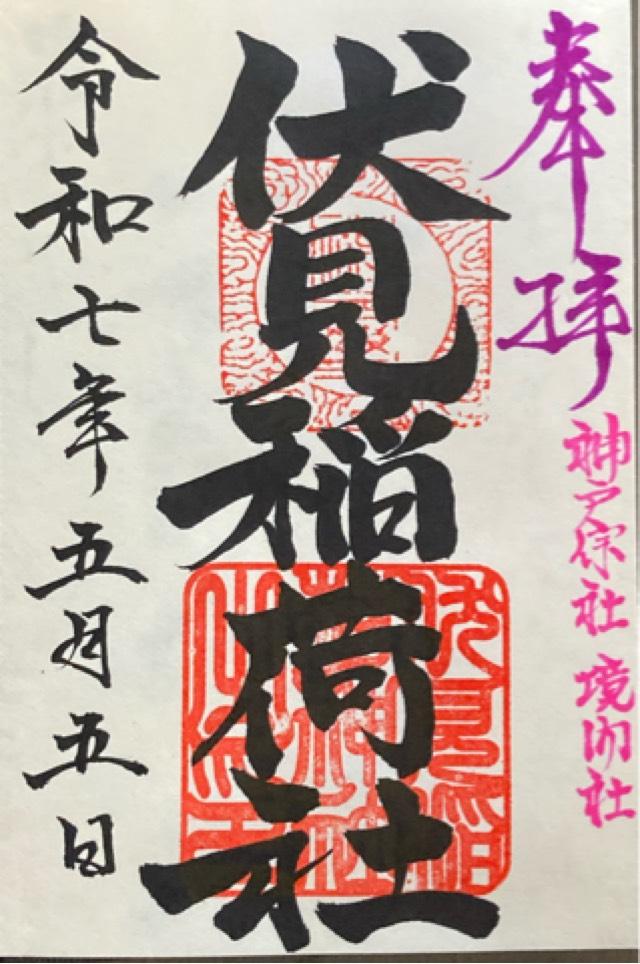 奉拝
神戸保社 境内社
伏見稲荷社
令和七年五月五日